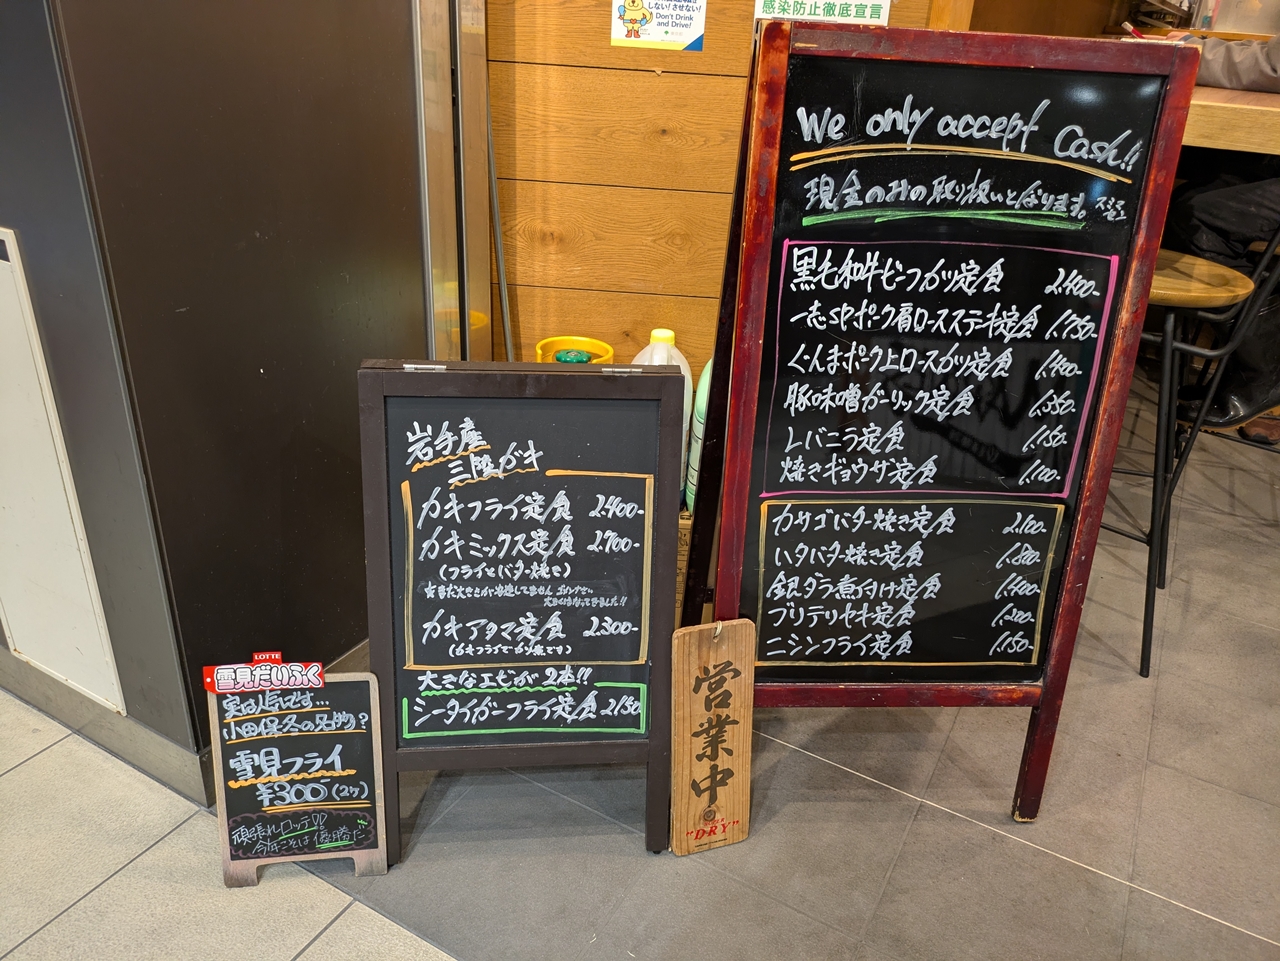 しない!させない!
Don't Drink
and Drive!
感染防止徹底宣言
We only accept Cash!!
現金のみの取り扱いとなります。スミマセン
黒毛和牛ビーフカツ定食 2,400-
一志SPポーク肩ロースステーキ定食 1,750-
ぐんまポーク上ロースカツ定食 1,400-
豚味噌ガーリック定食 1,350-
レバニラ定食 1,150-
焼きギョウザ定食 1,100-
カサゴバター焼き定食 2,100-
ハタバター焼き定食 1,800-
銀ダラ煮付け定食 1,400-
ブリテリヤキ定食 1,200-
ニシンフライ定食 1,150-
岩手産
三陸ガキ
カキフライ定食 2,400-
カキミックス定食 2,700-
(フライとバター焼き)
カキアタマ定食 2,300-
(カキフライでカツ煮です)
大きなエビが2本!!
シータイガーフライ定食 2,150
営業中
"DRY"
LOTTE
雪見だいふく
実は人気です…
小田保冬の名物?
雪見フライ
¥300-(2ケ)
頑張れロッテ!!
今年こそは優勝だ